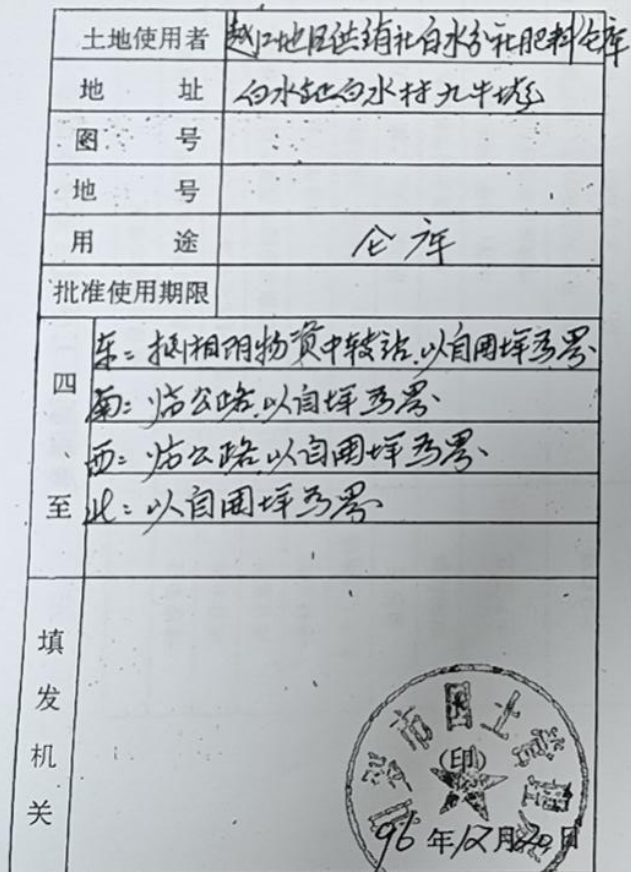 土地使用者 越江地区供销社白水分社肥料仓库
地址 白水白水村九牛
图号
地号
用途 仓库
批准使用期限
四至
东：湘阴物资中转站以自用坪为界
南：临公路以自坪为界
西：临公路以自用坪为界
北：以自用坪为界
填发机关
市国土管理局
(印)
96年12月20日